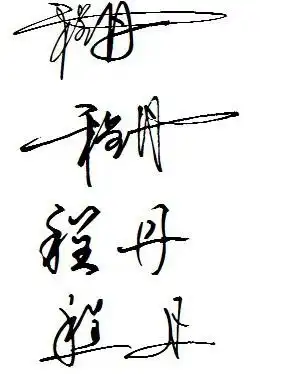 程丹
程丹
程丹
程丹